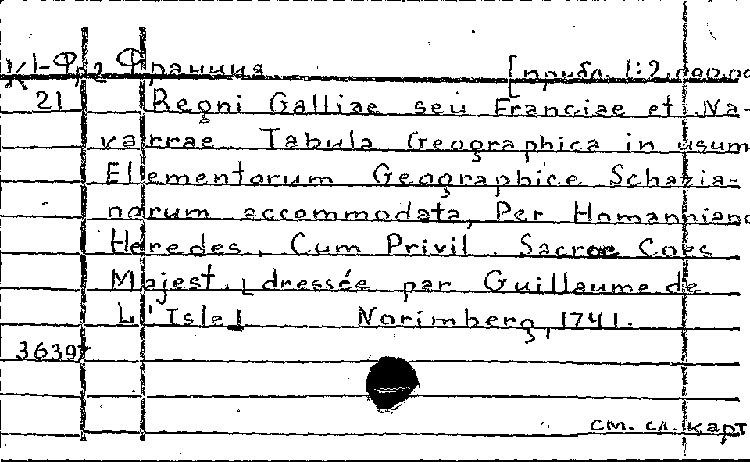 К1-Фр2 Франция [прибл. 1:2.000.00
21 Regni Galliae seu Franciae et Na-
varrae Tabula Geographica in usum
Elementorum Geographice Schazia-
norum accommodata, Per Homanniano
Heredes. Cum Privil. Sacrae Caes
Majest. [dressée par Guillaume de
L'Isle] Norimberg, 1741.
3639
см. сл. карт